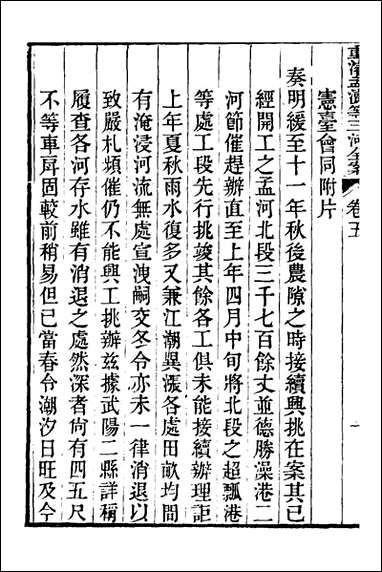 重濬孟瀆等三河全案 卷五 一
憲臺會同附片
奏明緩至十一年秋後農隙之時接續興挑在案其已
經開工之孟河北段三千七百餘丈並德勝澡港二
河節催趕辦直至上年四月中旬將北段之超瓢港
等處工段先行挑竣其餘各工俱未能接續辦理詎
上年夏秋雨水復多又兼江潮異漲各處田畝均間
有淹浸河流無處宣洩嗣交冬令亦未一律消退以
致嚴札頻催仍不能興工挑辦兹據武陽二縣詳稱
履查各河存水雖有消退之處然深者尙有四五尺
不等車戽固較前稍易但已當春令潮汐日旺及今